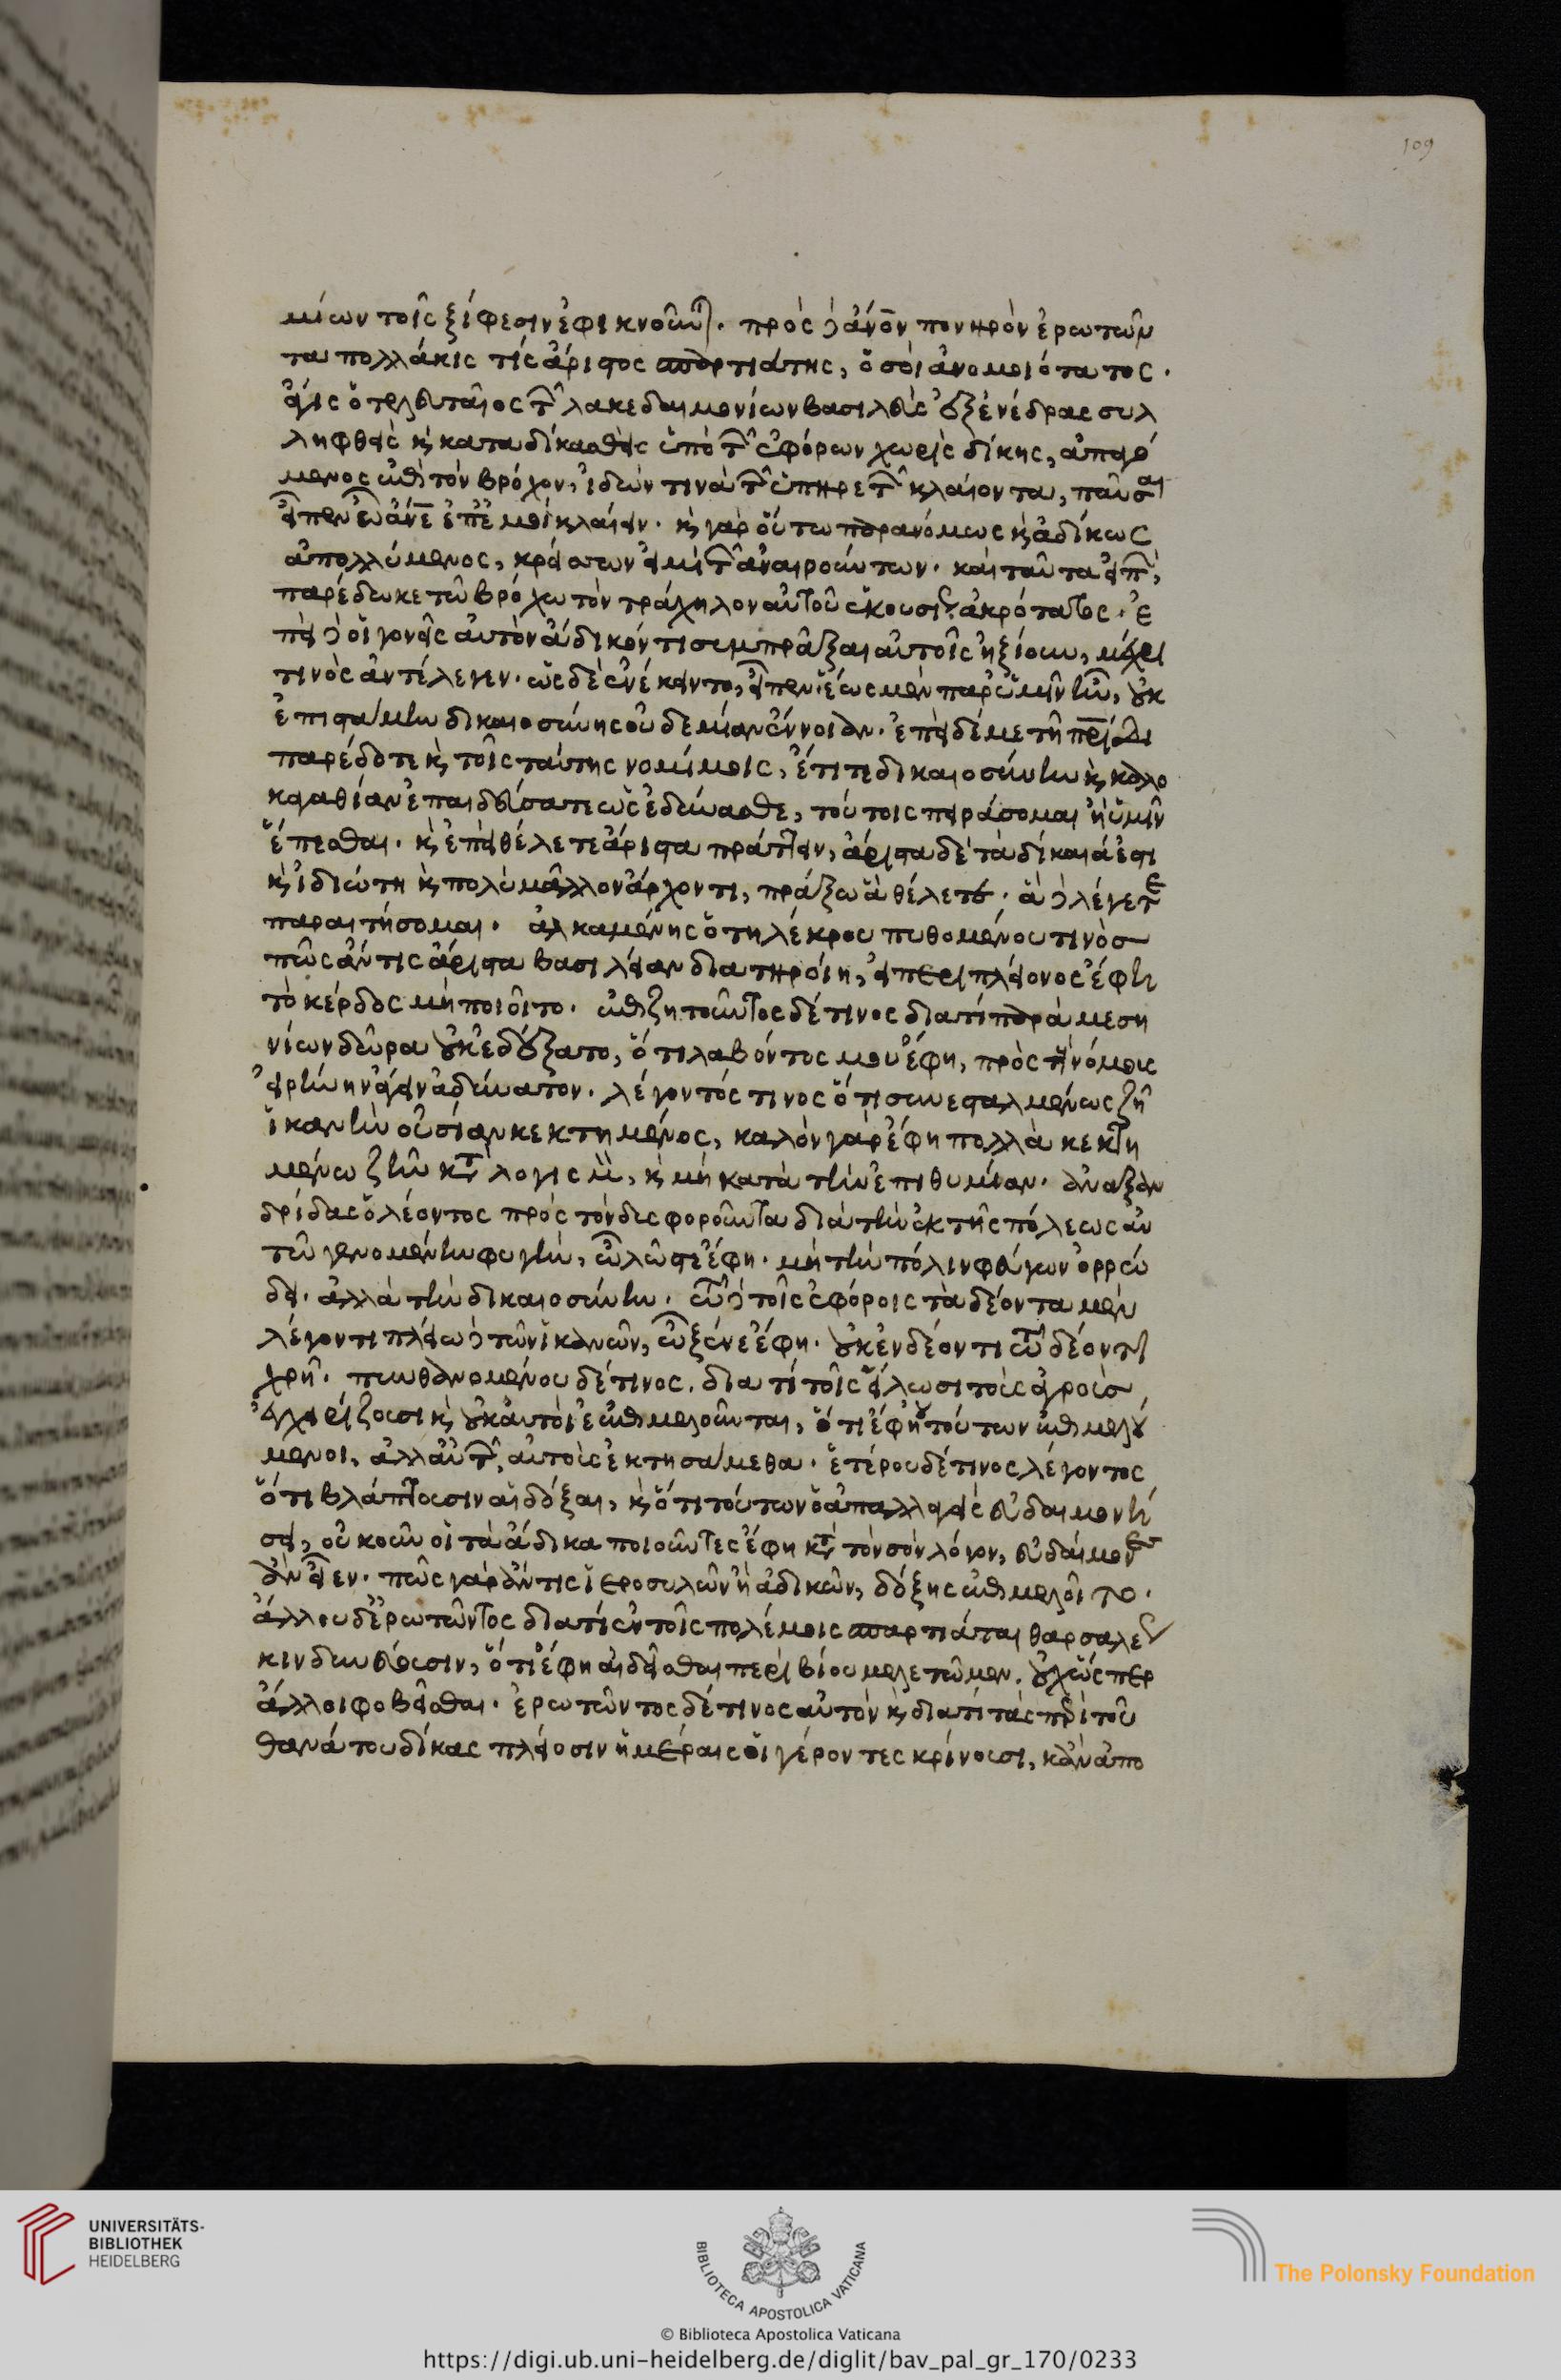 109
μίων τοῖς ξίφεσιν ἐφικνοῦνται. πρὸς δὲ ἄνον πονηρὸν ἐρωτῶν
τα πολλάκις τίς ἄριστος σπαρτιάτης, ὁ σοὶ ἀνομοιότατος.
ἄγις ὁ τελευταῖος τῶν λακεδαιμονίων βασιλεὺς ἐξ ἐνέδρας συλ
ληφθεὶς κ καταδικασθεὶς ὑπὸ τῶν ἐφόρων χωρὶς δίκης, ἀπαγό
μενος ἐπὶ τὸν βρόχον, ἰδών τινα τῶν ὑπηρετῶν κλαίοντα, παῦσαι
εἶπεν ὦ ἄνε ἐπ' ἐμοὶ κλαίειν. κ γὰρ οὕτω παρανόμως κ ἀδίκως
ἀπολλύμενος, κρείσσων εἰμὶ τῶν ἀναιρούντων. καὶ ταῦτα εἰπὼν,
παρέδωκε τῶ βρόχω τὸν τράχηλον αὐτοῦ ἑκουσίως. ἀκρότατος. ἐ
πεὶ δὲ οἱ γονεῖς αὐτὸν ἄδικόν τι συμπρᾶξαι αὐτοῖς ἠξίουν, μέχρι
τινὸς ἀντέλεγεν. ὡς δὲ ἐνέκειντο, εἶπεν. ἕως μὲν παρ' ὑμῖν ἦν, οὐκ
ἐπιστάμην δικαιοσύνης οὐδεμίαν ἔννοιαν. ἐπεὶ δέ με τῆ πρίδι
παρέδοτε κ τοῖς ταύτης νομίμοις, ἔτι τε δικαιοσύνην κ καλο
καγαθίαν ἐπαιδεύσατε ὡς ἐδύνασθε, τούτοις πειράσομαι ἢ ὑμῖν
ἕπεσθαι. κ ἐπεὶ θέλετε ἄριστα πράττειν, ἄριστα δὲ τὰ δίκαιά ἐστι
κ ἰδιώτη κ πολὺ μᾶλλον ἄρχοντι, πράξω ἃ θέλετε. ἃ δὲ λέγετε
παραιτήσομαι. ἀλκαμένης ὁ τηλέκρου πυθομένου τινὸσ
πῶς ἄν τις ἄριστα βασιλείαν διατηροίη, εἰ περὶ πλείονος ἔφη
τὸ κέρδος μὴ ποιοῖτο. ἐπιζητοῦντος δέ τινος διατί παρὰ μεση
νίων δῶρα οὐκ ἐδέξατο, ὅτι λαβόντος μου ἔφη, πρὸς τοὺς νόμους
εἰρήνην ἄγειν ἀδύνατον. λέγοντός τινος ὅτι συνεσταλμένως ζῆ
ἱκανὴν οὐσίαν κεκτημένος, καλὸν γὰρ ἔφη πολλὰ κεκτη
μένω ζῆν κατὰ λογισμὸν, κ μὴ κατὰ τὴν ἐπιθυμίαν. ἀναξαν
δρίδας ὁ λέοντος πρὸς τὸν δισφοροῦντα διὰ τὴν ἐκ τῆς πόλεως αὐ
τῶ γενομένην φυγὴν, ὦ λῶστε ἔφη. μὴ τὴν πόλιν φεύγων ὀρρώ
δει. ἀλλὰ τὴν δικαιοσύνην. τῶ δὲ τοῖς ἐφόροις τὰ δέοντα μὲν
λέγοντι πλείω δὲ τῶν ἱκανῶν, ὦ ξένε ἔφη. οὐκ ἐν δέοντι τῶ δέοντι
χρῆ. πυνθανομένου δέ τινος. διατί τοῖς εἵλωσι τοὺς ἀγροὺσ
ἐγχειρίζουσι κ οὐκ αὐτοὶ ἐπιμελοῦνται, ὅτι ἔφη οὐ τούτων ἐπιμελού
μενοι, ἀλλ' αὑτῶν, αὐτοὺς ἐκτησάμεθα. ἑτέρου δέ τινος λέγοντος
ὅτι βλάπτουσιν αἱ δόξαι, κ ὅτι τούτων ὁ ἀπαλλαγεὶς εὐδαιμονή
σει, οὐκοῦν οἱ τὰ ἄδικα ποιοῦντες ἔφη κατὰ τὸν σὸν λόγον, εὐδαίμονες
ἂν εἶεν. πῶς γὰρ ἄν τις ἱεροσυλῶν ἢ ἀδικῶν, δόξης ἐπιμελοῖτο.
ἄλλου δ' ἐρωτῶντος διατί ἐν τοῖς πολέμοις σπαρτιάται θαρσαλέως
κινδυνεύουσιν, ὅτι ἔφη αἰδεῖσθαι περὶ βίου μελετῶμεν, οὐχ ὥσπερ
ἄλλοι φοβεῖσθαι. ἐρωτῶντος δέ τινος αὐτὸν κ διατί τὰς περὶ τοῦ
θανάτου δίκας πλείοσιν ἡμέραις οἱ γέροντες κρίνουσι, κἂν ἀπο
UNIVERSITÄTS-
BIBLIOTHEK
HEIDELBERG
BIBLIOTECA APOSTOLICA VATICANA
The Polonsky Foundation
© Biblioteca Apostolica Vaticana
https://digi.ub.uni-heidelberg.de/diglit/bav_pal_gr_170/0233